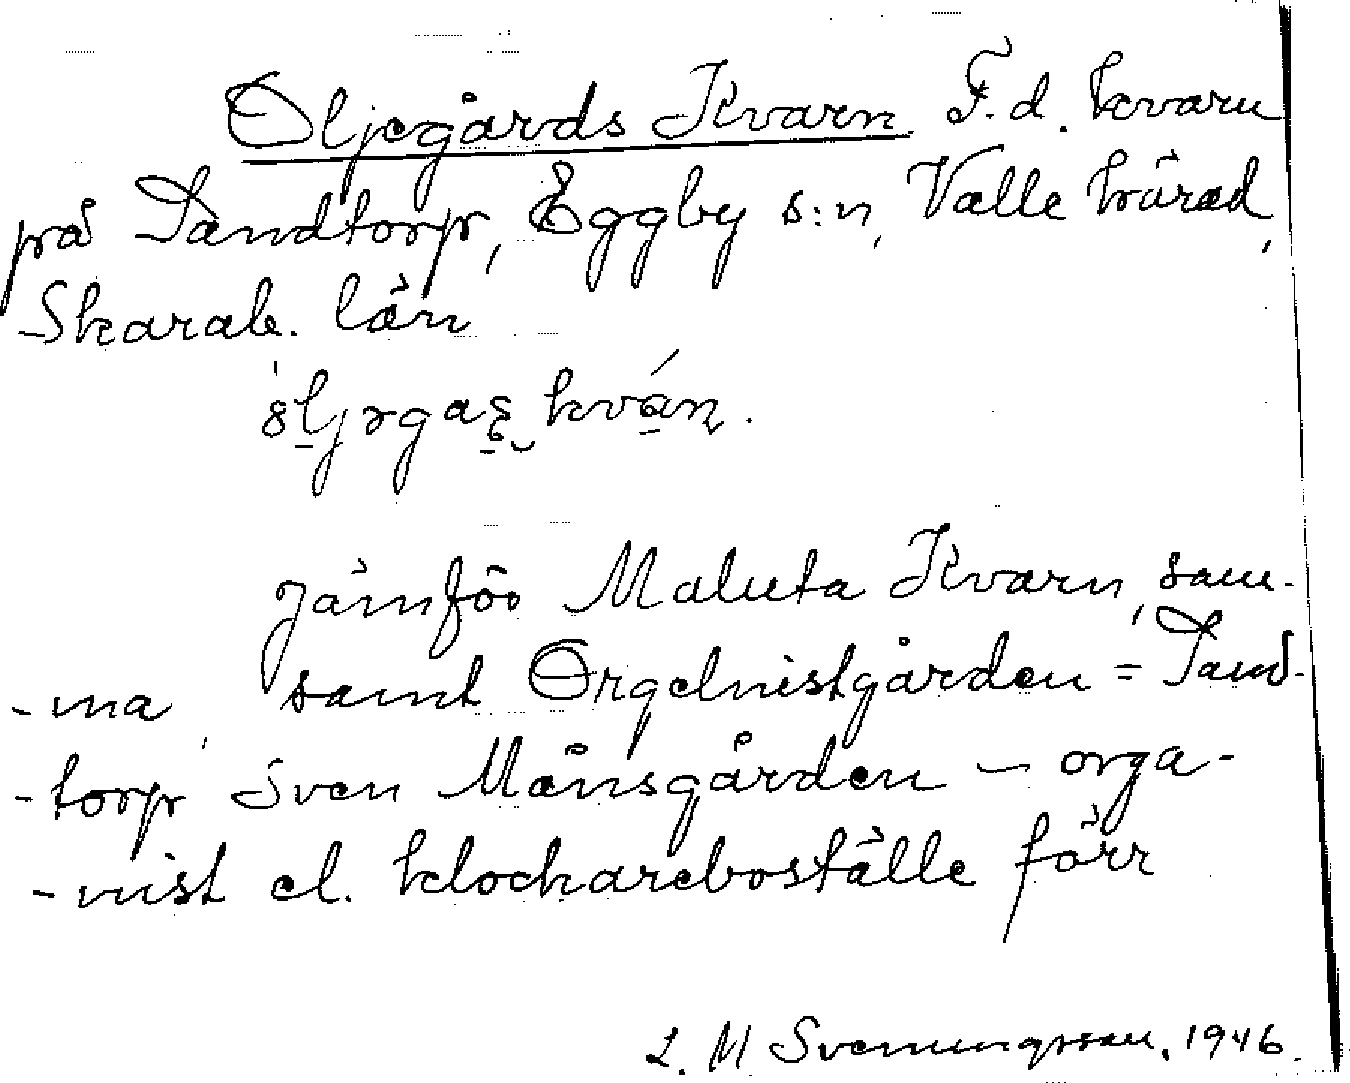 Oljegårds Kvarn F. d. kvarn
på Sandtorp, Eggby s:n, Valle härad,
Skarab. län
Jämför Maluta Kvarn, sam-
-ma, samt Orgelnistgården = Sand-
-torp Sven Månsgården – orga-
-nist el. klockareboställe förr
L. M. Svenungsson, 1946.